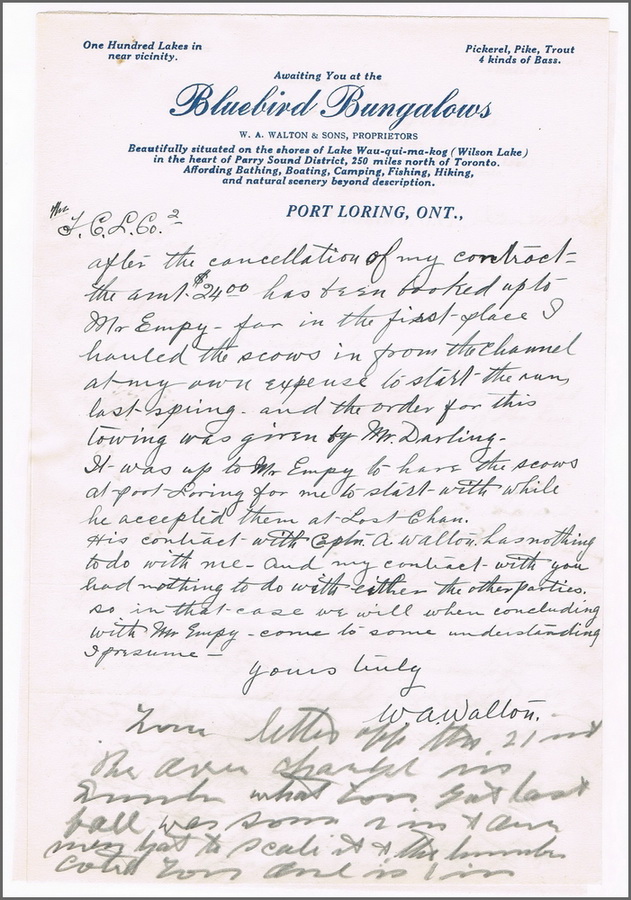 One Hundred Lakes in
near vicinity.
Pickerel, Pike, Trout
4 kinds of Bass.
Awaiting You at the
Bluebird Bungalows
W. A. WALTON & SONS, PROPRIETORS
Beautifully situated on the shores of Lake Wau-qui-ma-kog (Wilson Lake)
in the heart of Parry Sound District, 250 miles north of Toronto.
Affording Bathing, Boating, Camping, Fishing, Hiking,
and natural scenery beyond description.
PORT LORING, ONT.,
L. Co. 2
after the cancellation of my contract-
the amt. $24 00 has been booked up to
Mr Empy - for in the first place I
hauled the scows in from the channel
at my own expense to start the run
last spring - and the order for this
towing was given by Mr. Darling -
It was up to Mr Empy to have the scows
at port Loring for me to start with while
he accepted them at Lost Chan.
His contract with Captn. A Walton has nothing
to do with me - and my contract with you
had nothing to do with either the other parties.
so in that case we will when concluding
with Mr Empy - come to some understanding
I presume -
yours truly
W. A. Walton.
letter 21
The over
what last
was
men to scale it & the lumber
is 1 in